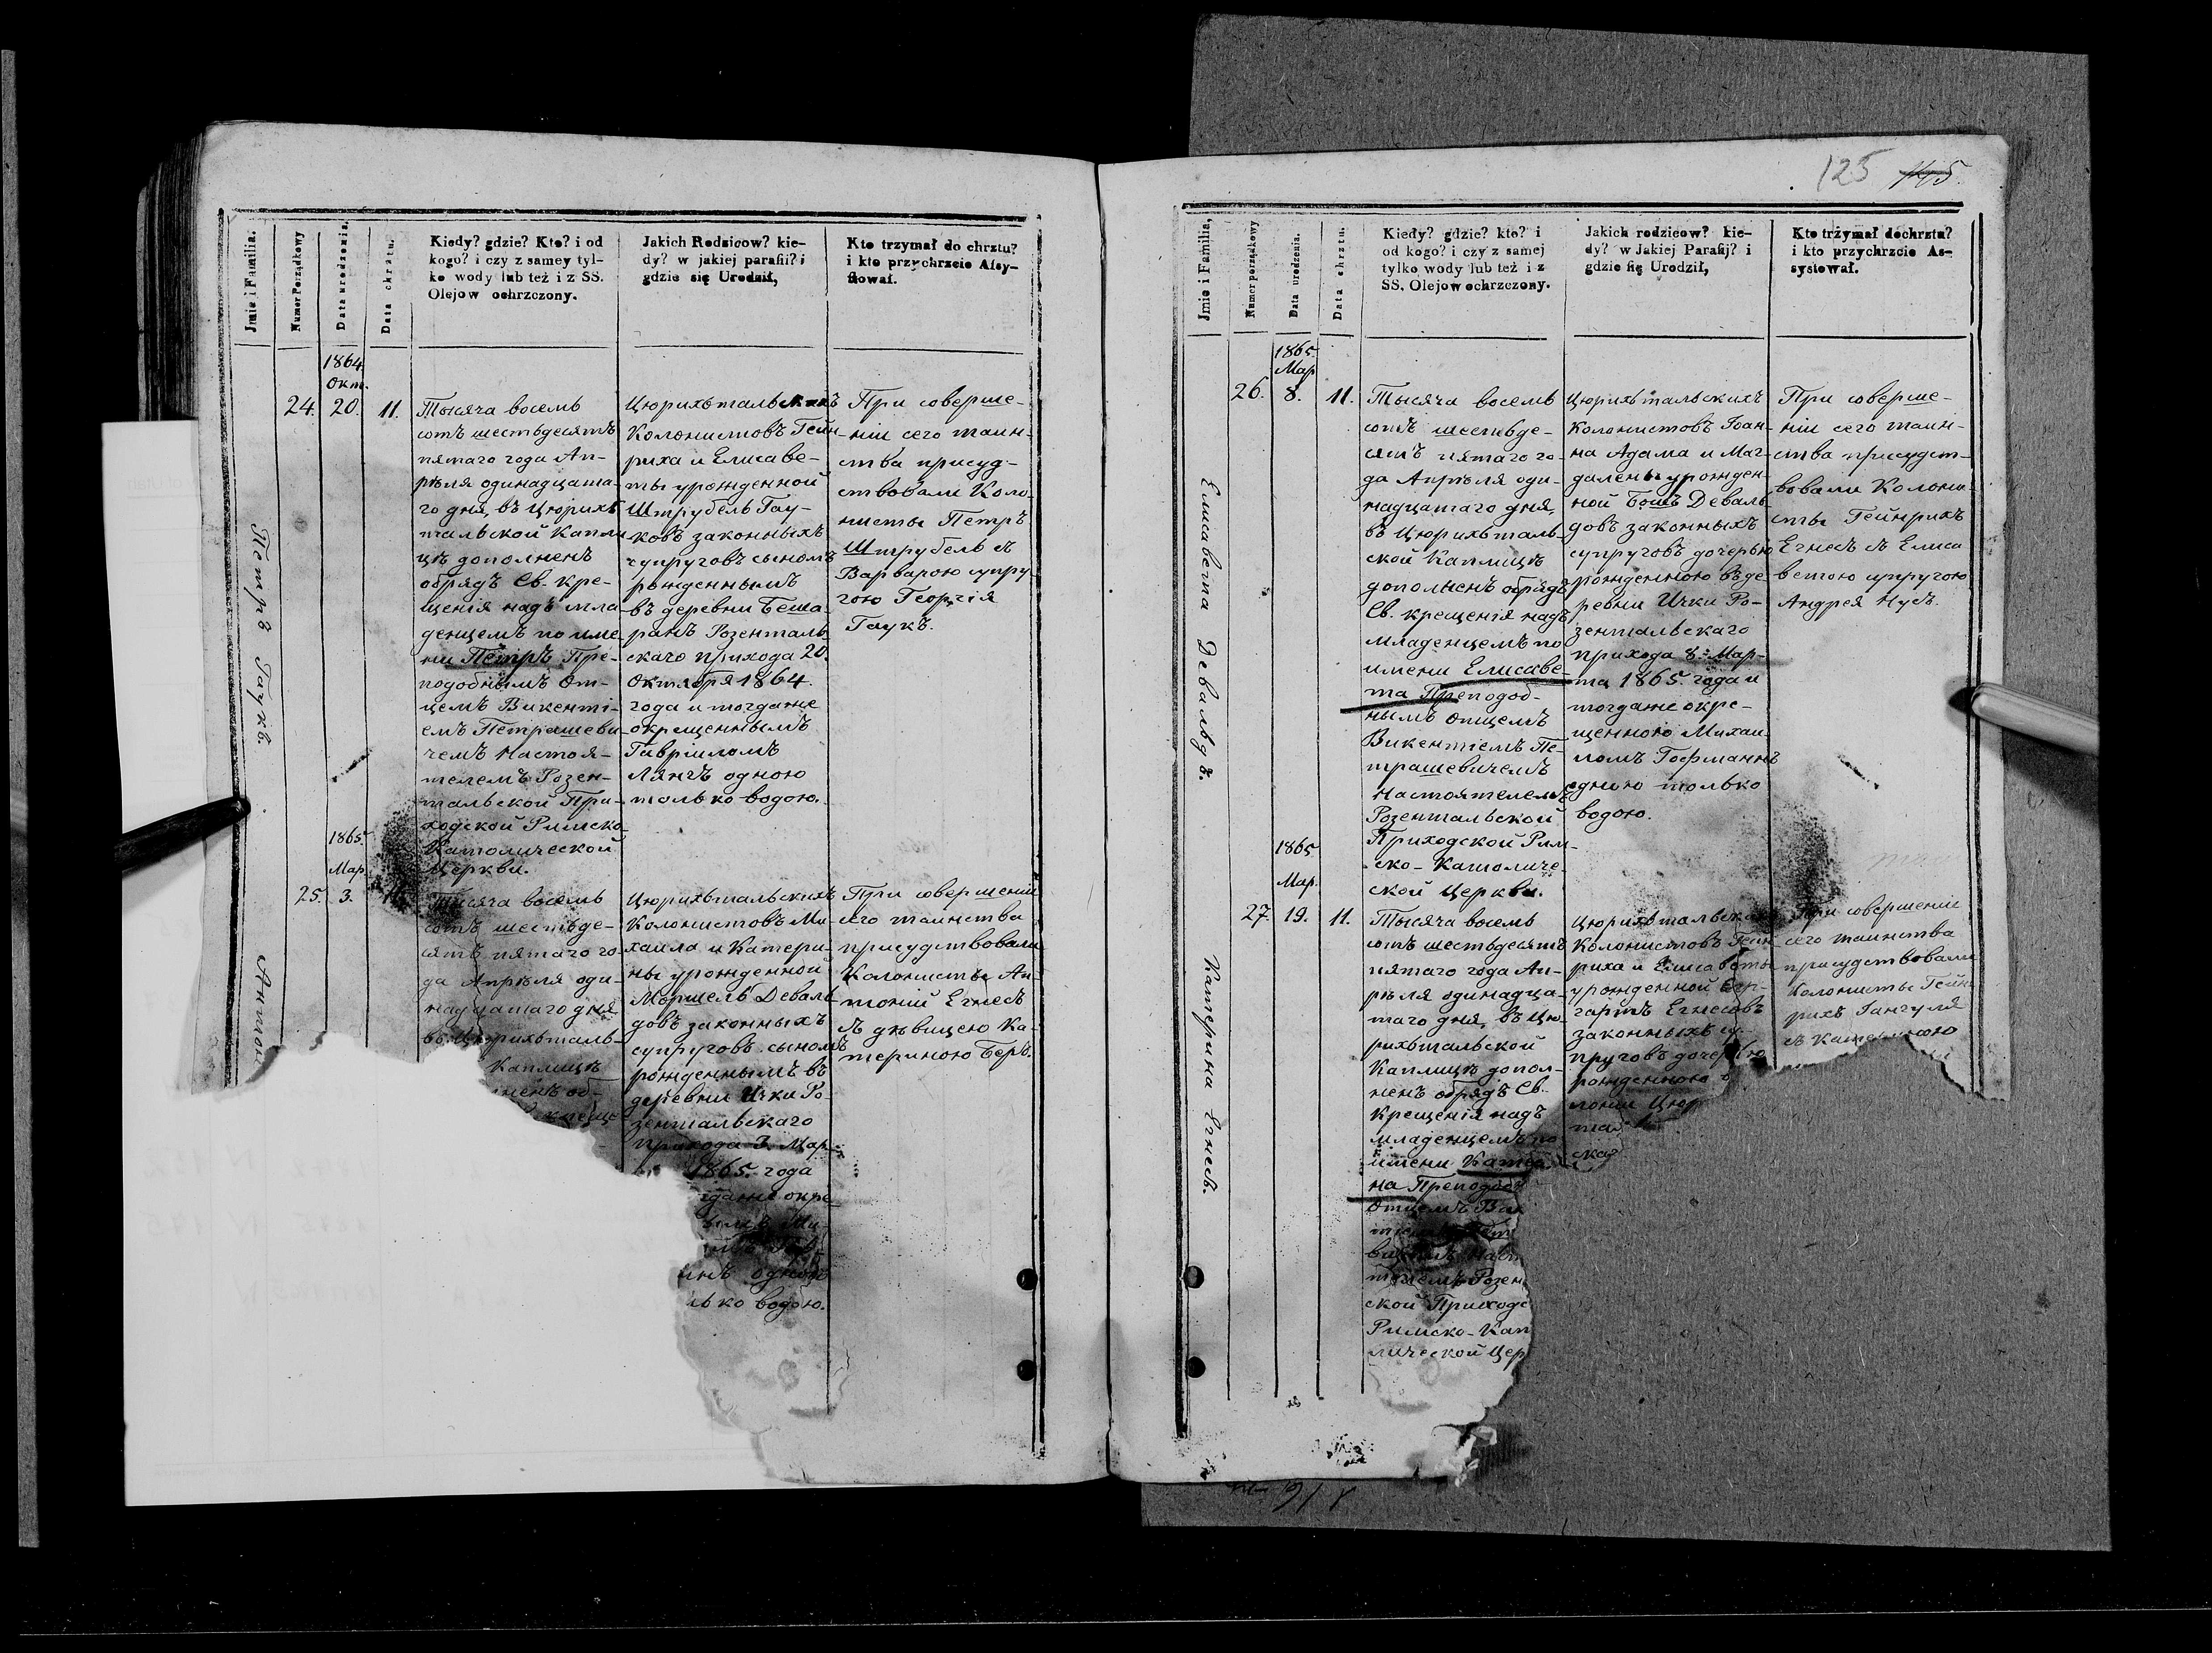 Jmie i Familia.
Numer Porządkowy
Data urodzenia.
Data chrztu.
Kiedy? gdzie? Kto? i od
kogo? i czy z samey tyl-
ko wody lub też i z SS.
Olejow ochrzczony.
Jakich Rodzicow? kie-
dy? w jakiej parafii? i
gdzie się Urodził,
Kto trzymał do chrztu?
i kto przychrzcie Assy-
stował.
Петръ Гаукъ.
1864
Окт.
24. 20. 11.
Тысяча восемь
сотъ шестьдесятъ
пятаго года Ап-
рѣля одинадцата-
го дня, въ Цюрихъ
тальской Капли
цѣ дополненъ
обрядъ Св. Кре-
щенія надъ мла
денцемъ по име
ни Петръ Пре-
подобнымъ От-
цемъ Викенті-
емъ Петрашеви
чемъ Настоя-
телемъ Розен-
тальской При-
ходской Римско-
Католической
Церкви.
Цюрихтальскихъ
Колонистовъ Гейн-
риха и Елисаве-
ты урожденной
Штрубель Гау-
ковъ законныхъ
супруговъ сыномъ
рожденнымъ
въ деревни Беша
ранъ Розенталь
скаго прихода 20.
Октября 1864.
года и тогда же
окрещеннымъ
Гавріиломъ
Лянгъ одною
только водою.
При соверше-
ніи сего таин-
ства присуд-
ствовали Коло-
нисты Петръ
Штрубель съ
Варварою супру-
гою Георгія
Гаукъ.
Антон
1865.
Мар.
25. 3. 11.
Тысяча восемь
сотъ шестьде-
сятъ пятаго го-
да Апрѣля оди-
надцатаго дня
въ Цюрихталь-
Каплицѣ
ненъ об-
креще
Цюрихтальскихъ
Колонистовъ Ми-
хаила и Катери-
ны урожденной
Морцель Деваль
довъ законныхъ
супруговъ сыномъ
рожденнымъ въ
деревни Ички Ро-
зентальскаго
прихода 3. Мар-
1865. года
гда же окре
одною
лько водою.
При совершеніи
сего таинства
присудствовали
Колонисты Ан-
тоній Егнесъ
съ дѣвицею Ка-
териною Беръ.
125 145.
Jmie i Familia,
Numer porządkowy
Data urodzenia.
Data chrztu.
Kiedy? gdzie? kto? i
od kogo? i czy z samej
tylko wody lub też i z
SS. Olejow ochrzczony.
Jakich rodzicow? kie-
dy? w Jakiej Parafij? i
gdzie się Urodził,
Kto trzymał dochrztu?
i kto przychrzcie As-
systował.
Елисавета Девальдъ.
1865.
Мар
26. 8. 11.
Тысяча восемь
сотъ шестьде-
сятъ пятаго го-
да Апрѣля оди-
надцатаго дня,
въ Цюрихъталь-
ской Каплицѣ
дополненъ обрядъ
Св. Крещенія надъ
младенцемъ по
имени Елисаве-
та Преподоб-
нымъ Отцемъ
Викентіемъ Пе-
трашевичемъ
Настоятелемъ
Розентальской
Приходской Рим-
ско-Католиче-
ской Церкви.
Цюрихътальскихъ
Колонистовъ Іоан-
на Адама и Маг-
далены урожден
ной Бошъ Деваль
довъ законныхъ
супруговъ дочерью
рожденною въ де
ревни Ички Ро-
зентальскаго
прихода 8. Мар-
та 1865. года и
тогда же окре-
щенною Михаи
ломъ Гофманнъ
одною только
водою.
При соверше-
ніи сего таин-
ства присудст-
вовали Колони-
сты Гейнрихъ
Егнесъ съ Елиса
ветою супругою
Андрея Нусъ.
Катерина Егнесъ.
1865
Мар.
27. 19. 11.
Тысяча восемь
сотъ шестьдесятъ
пятаго года Ап-
рѣля одинадца-
таго дня, въ Цю-
рихътальской
Каплицѣ допол-
ненъ обрядъ Св.
Крещенія надъ
младенцемъ по
имени Катери
на Преподоб
Отцемъ Вик
Розен
ской Приходс
Римско-Като
лической Цер
Цюрихътальских
Колонистовъ Гейн
риха и Елисаветы
урожденной
Егнесовъ
законныхъ су-
пруговъ дочерью
рожденною
лоніи Цюр
тал
ска
При совершеніи
сего таинства
присудствовали
Колонисты Гейн
рихъ Гангуля
съ Катериною